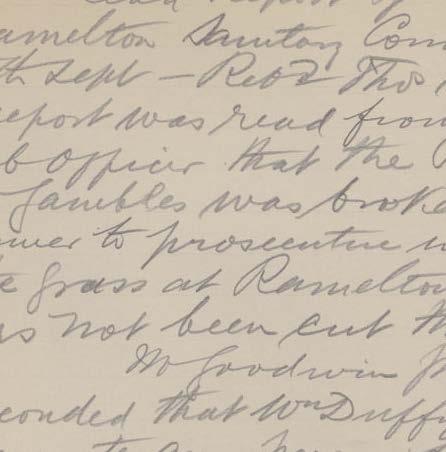 read report of
amelton Sanitary Com
th Sept — Resd This
report was read from
b Officer that the
Gambles was broke
wer to prosecution
e grass at Ramelton
as not been cut th
W Goodwin
conded that Wm Duffy